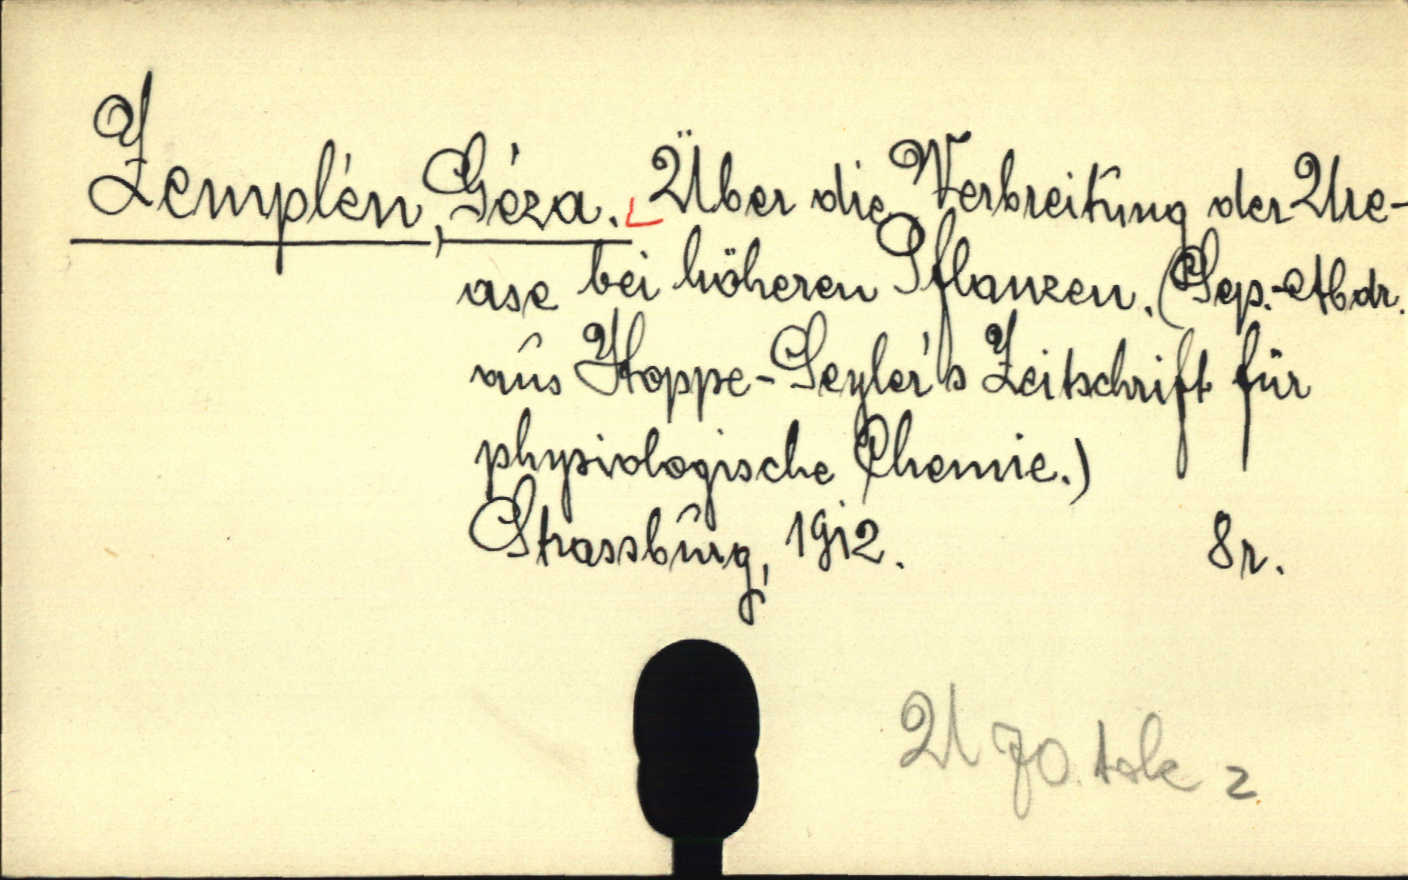 Zemplén, Géza. Über die Verbreitung der Ure-
ase bei höheren Pflanzen. (Sep.-Abdr.
aus Hoppe-Seyler's Zeitschrift für
physiologische Chemie.)
Strassburg, 1912. 8r.
2